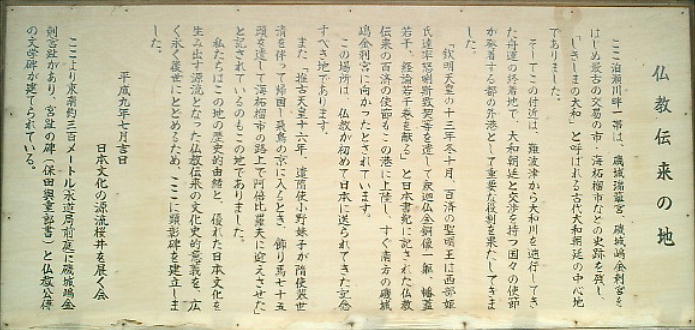 仏教伝来の地
ここ泊瀬川畔一帯は、磯城瑞籬宮、磯城嶋金刺宮を
はじめ最古の交易の市・海柘榴市などの史跡を残し、
「しきしまの大和」と呼ばれる古代大和朝廷の中心地
でありました。
そしてこの付近は、難波津から大和川を遡行してき
た舟運の終着地で、大和朝廷と交渉を持つ国々の使節
が発着する都の外港として重要な役割を果たしてきま
した。
「欽明天皇の十三年冬十月、百済の聖明王は西部姫
氏達率怒唎斯致契等を遣して釈迦仏金銅像一軀、幡蓋
若干、経論若干巻を献る」と日本書紀に記された仏教
伝来の百済の使節もこの港に上陸し、すぐ南方の磯城
嶋金刺宮に向かったとされています。
この場所は、仏教が初めて日本に送られてきた記念
すべき地であります。
また、推古天皇十六年、遣隋使小野妹子が隋使裴世
清を伴って帰国し飛鳥の京に入るとき、飾り馬七十五
頭を遣して海柘榴市の路上で阿倍比羅夫に迎えさせた
と記されているのもこの地でありました。
私たちはこの地の歴史的由緒と、優れた日本文化を
生み出す源流となった仏教伝来の文化史的意義を、広
く永く後世にとどめるため、ここに顕彰碑を建立しま
した。
平成九年七月吉日
日本文化の源流桜井を展く会
ここより東南約三百メートル水道局前庭に磯城嶋金
刺宮址があり、宮址の碑(保田與重郎書)と仏教公傳
の文学碑が建てられている。